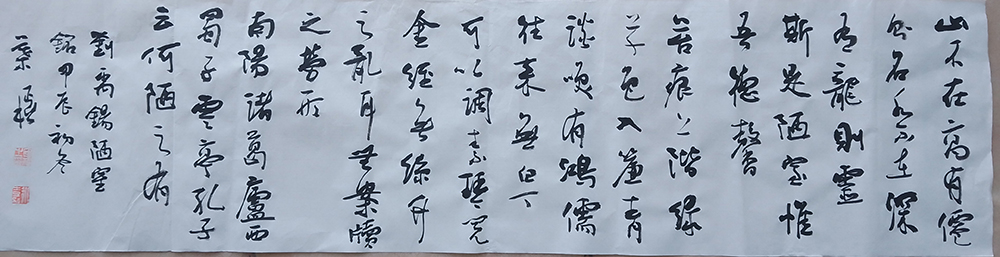 山不在高有僊
則名水不在深
有龍則靈
斯是陋室惟
吾德馨
苔痕上階綠
草色入簾青
談咲有鴻儒
往來無白丁
可以調素琴閱
金經無絲竹
之亂耳無案牘
之勞形
南陽諸葛廬西
蜀子雲亭孔子
云何陋之有
劉禹錫陋室
銘甲辰初冬